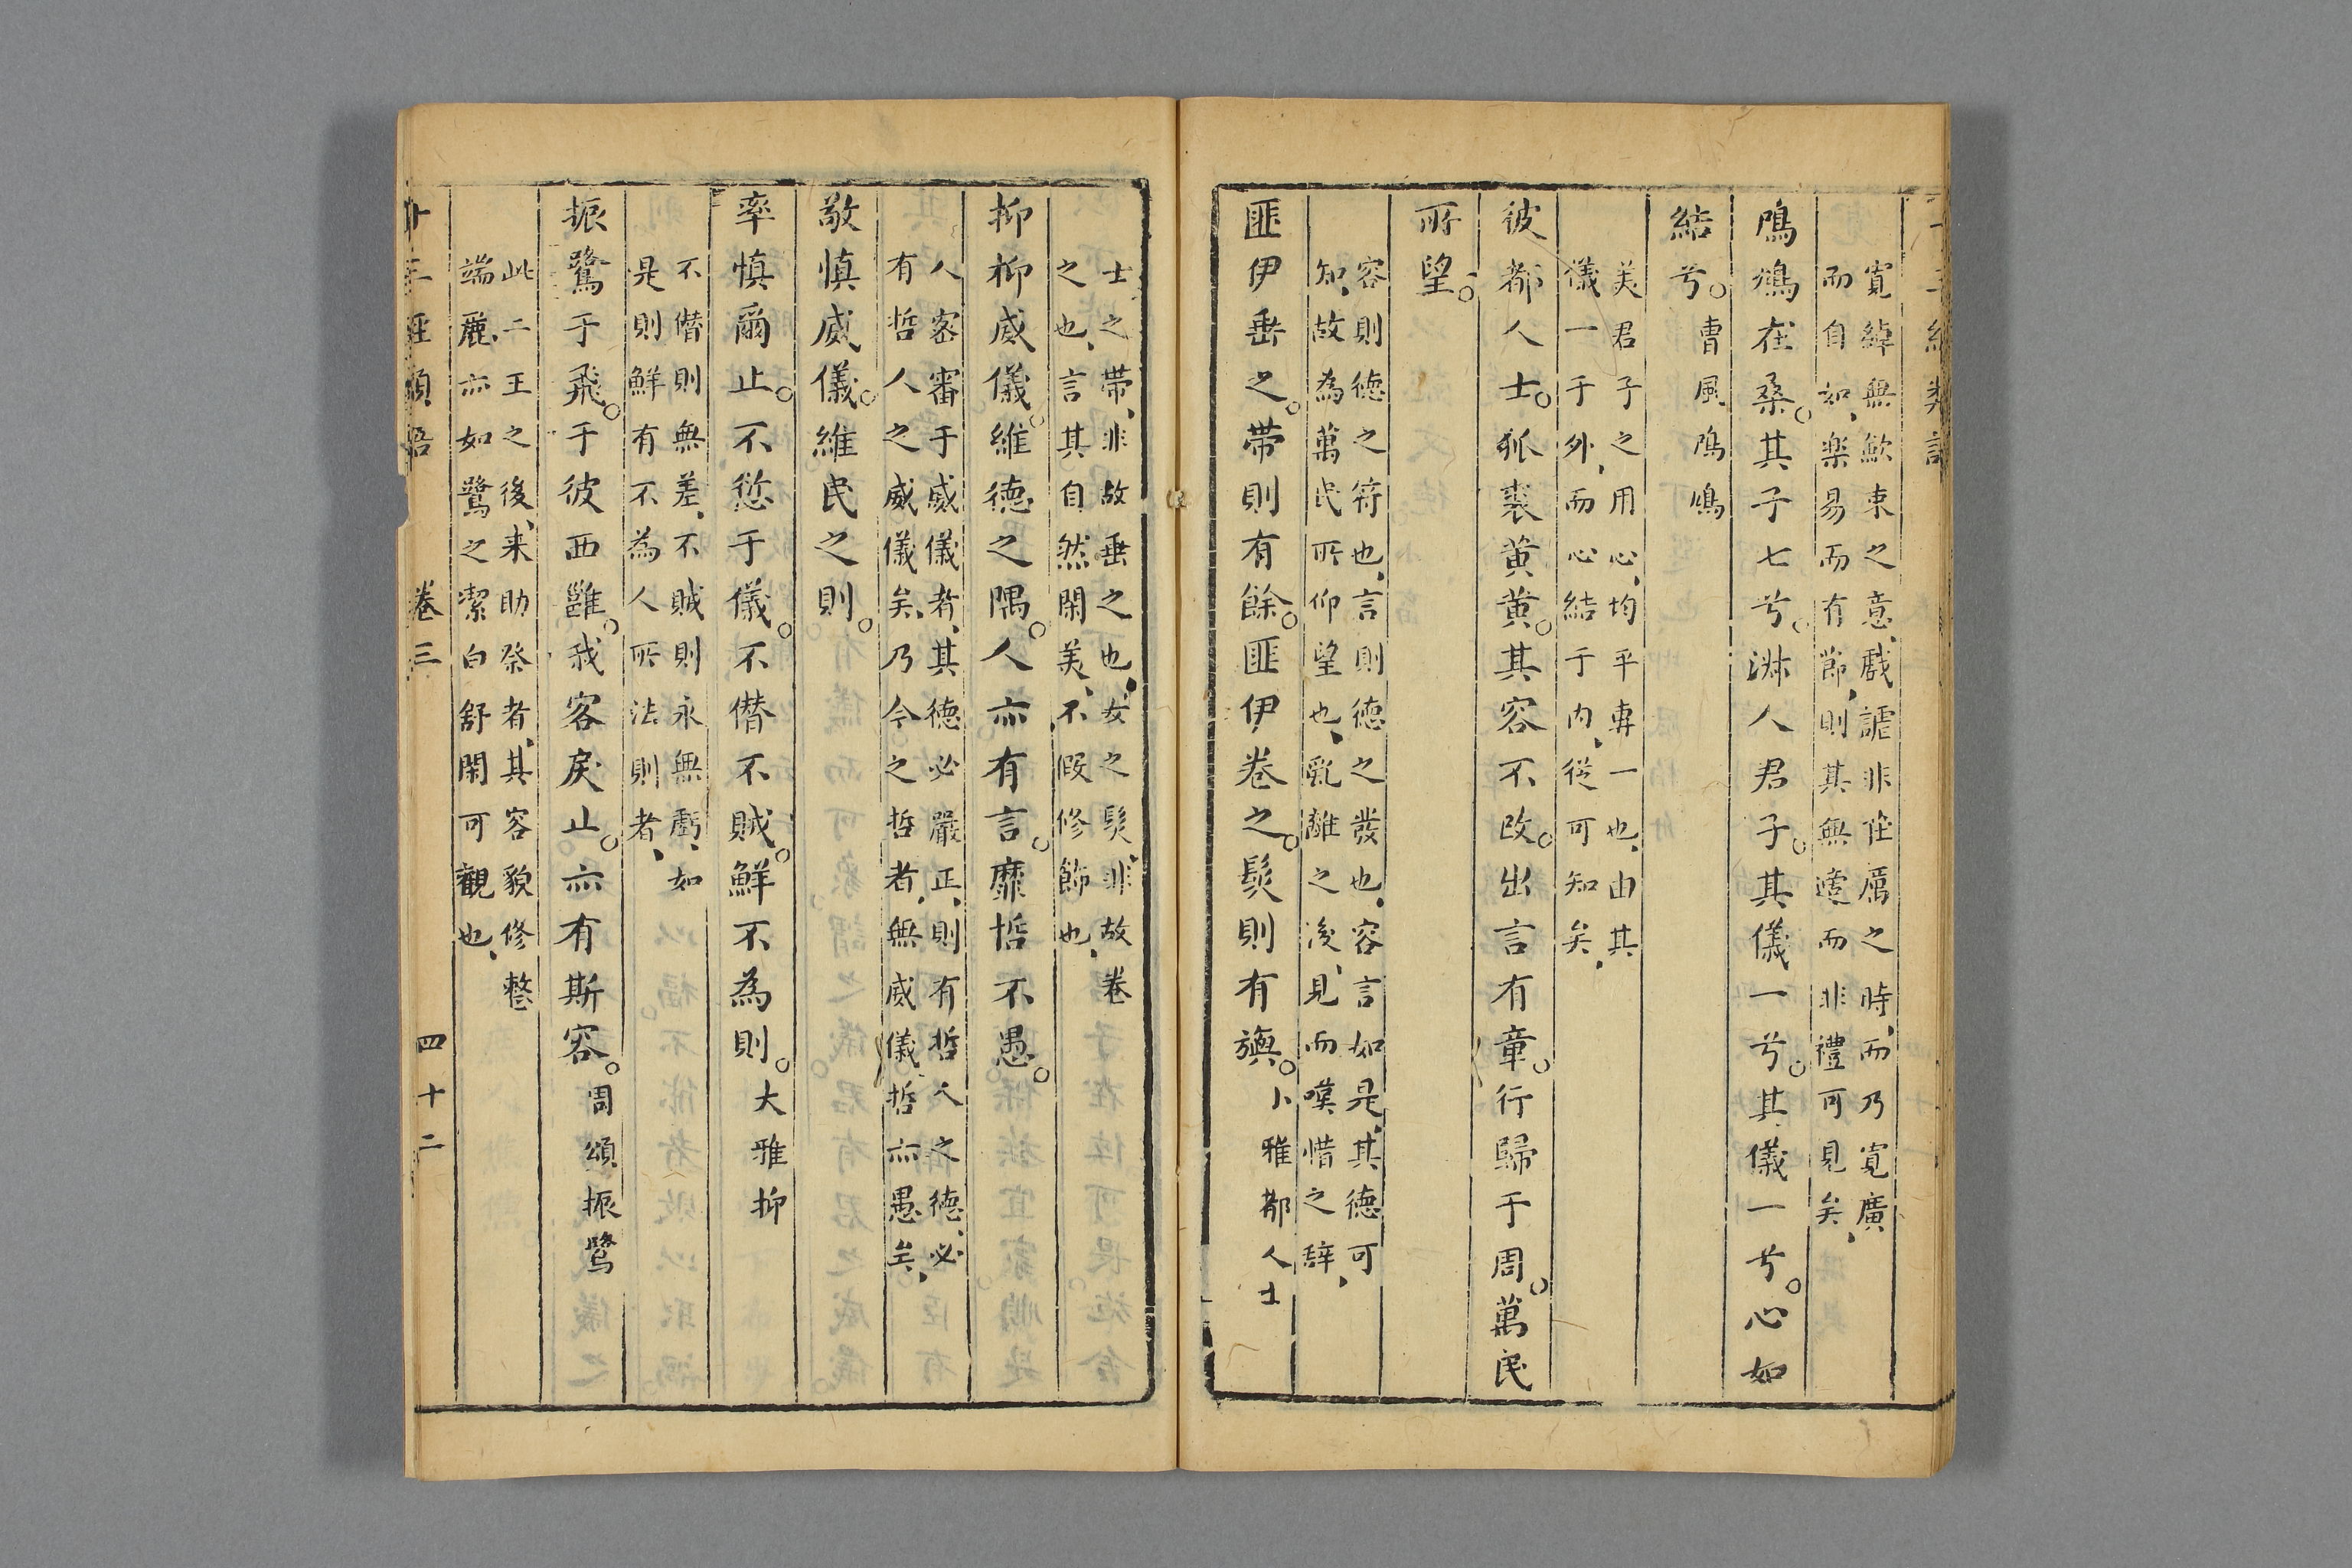 寬綽無歛束之意戲謔非莊厲之時而乃寬廣
而自如樂易而有節則其無適而非禮可見矣
鳲鳩在桑其子七兮淑人君子其儀一兮其儀一兮心如
結兮 曹風鳲鳩
美君子之用心均平專一也由其
儀一于外而心結于內從可知矣
彼都人士狐裘黃黃其容不改出言有章行歸于周萬民
所望
容則德之符也言則德之發也容言如是其德可
知故為萬民所仰望也亂離之後見而嘆惜之辭
匪伊垂之帶則有餘匪伊卷之髮則有旟 小雅都人士
士之帶非故垂之也女之髮非故卷
之也言其自然閑美不假修飾也
抑抑威儀維德之隅人亦有言靡哲不愚
人密審于威儀者其德必嚴正則有哲人之德必
有哲人之威儀矣乃今之哲者無威儀哲亦愚矣
敬慎威儀維民之則
率慎爾止不愆于儀不僭不賊鮮不為則 大雅抑
不僭則無差不賊則永無虧如
是則鮮有不為人所法則者
振鷺于飛于彼西雝我客戾止亦有斯容 周頌振鷺
此二王之後來助祭者其容貌修整
端麗亦如鷺之潔白舒閑可觀也
十三經類語 卷三 四十二